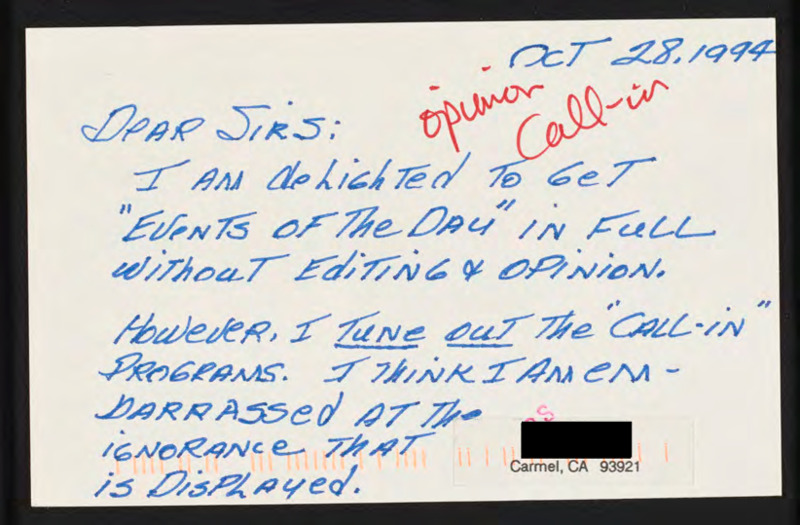 OCT 28, 1994
opinion
Call-in
DEAR SIRS:
I AM deLighTed To GeT
"EVENTS OF The DAY" IN FULL
WiThouT EdiTiNG & OPINION.
However, I TUNE OUT The "CALL-iN"
PROGRAMS. I ThiNK I AM em-
BARRASSed AT The
iGNORANCe ThAT
is DisPLAYed.
Carmel, CA 93921